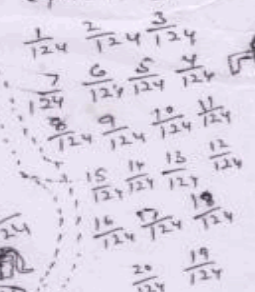 1/124 2/124 3/124
7/124 6/124 5/124 4/124
8/124 9/124 10/124 11/124
15/124 14/124 13/124 12/124
16/124 17/124 18/124
20/124 19/124